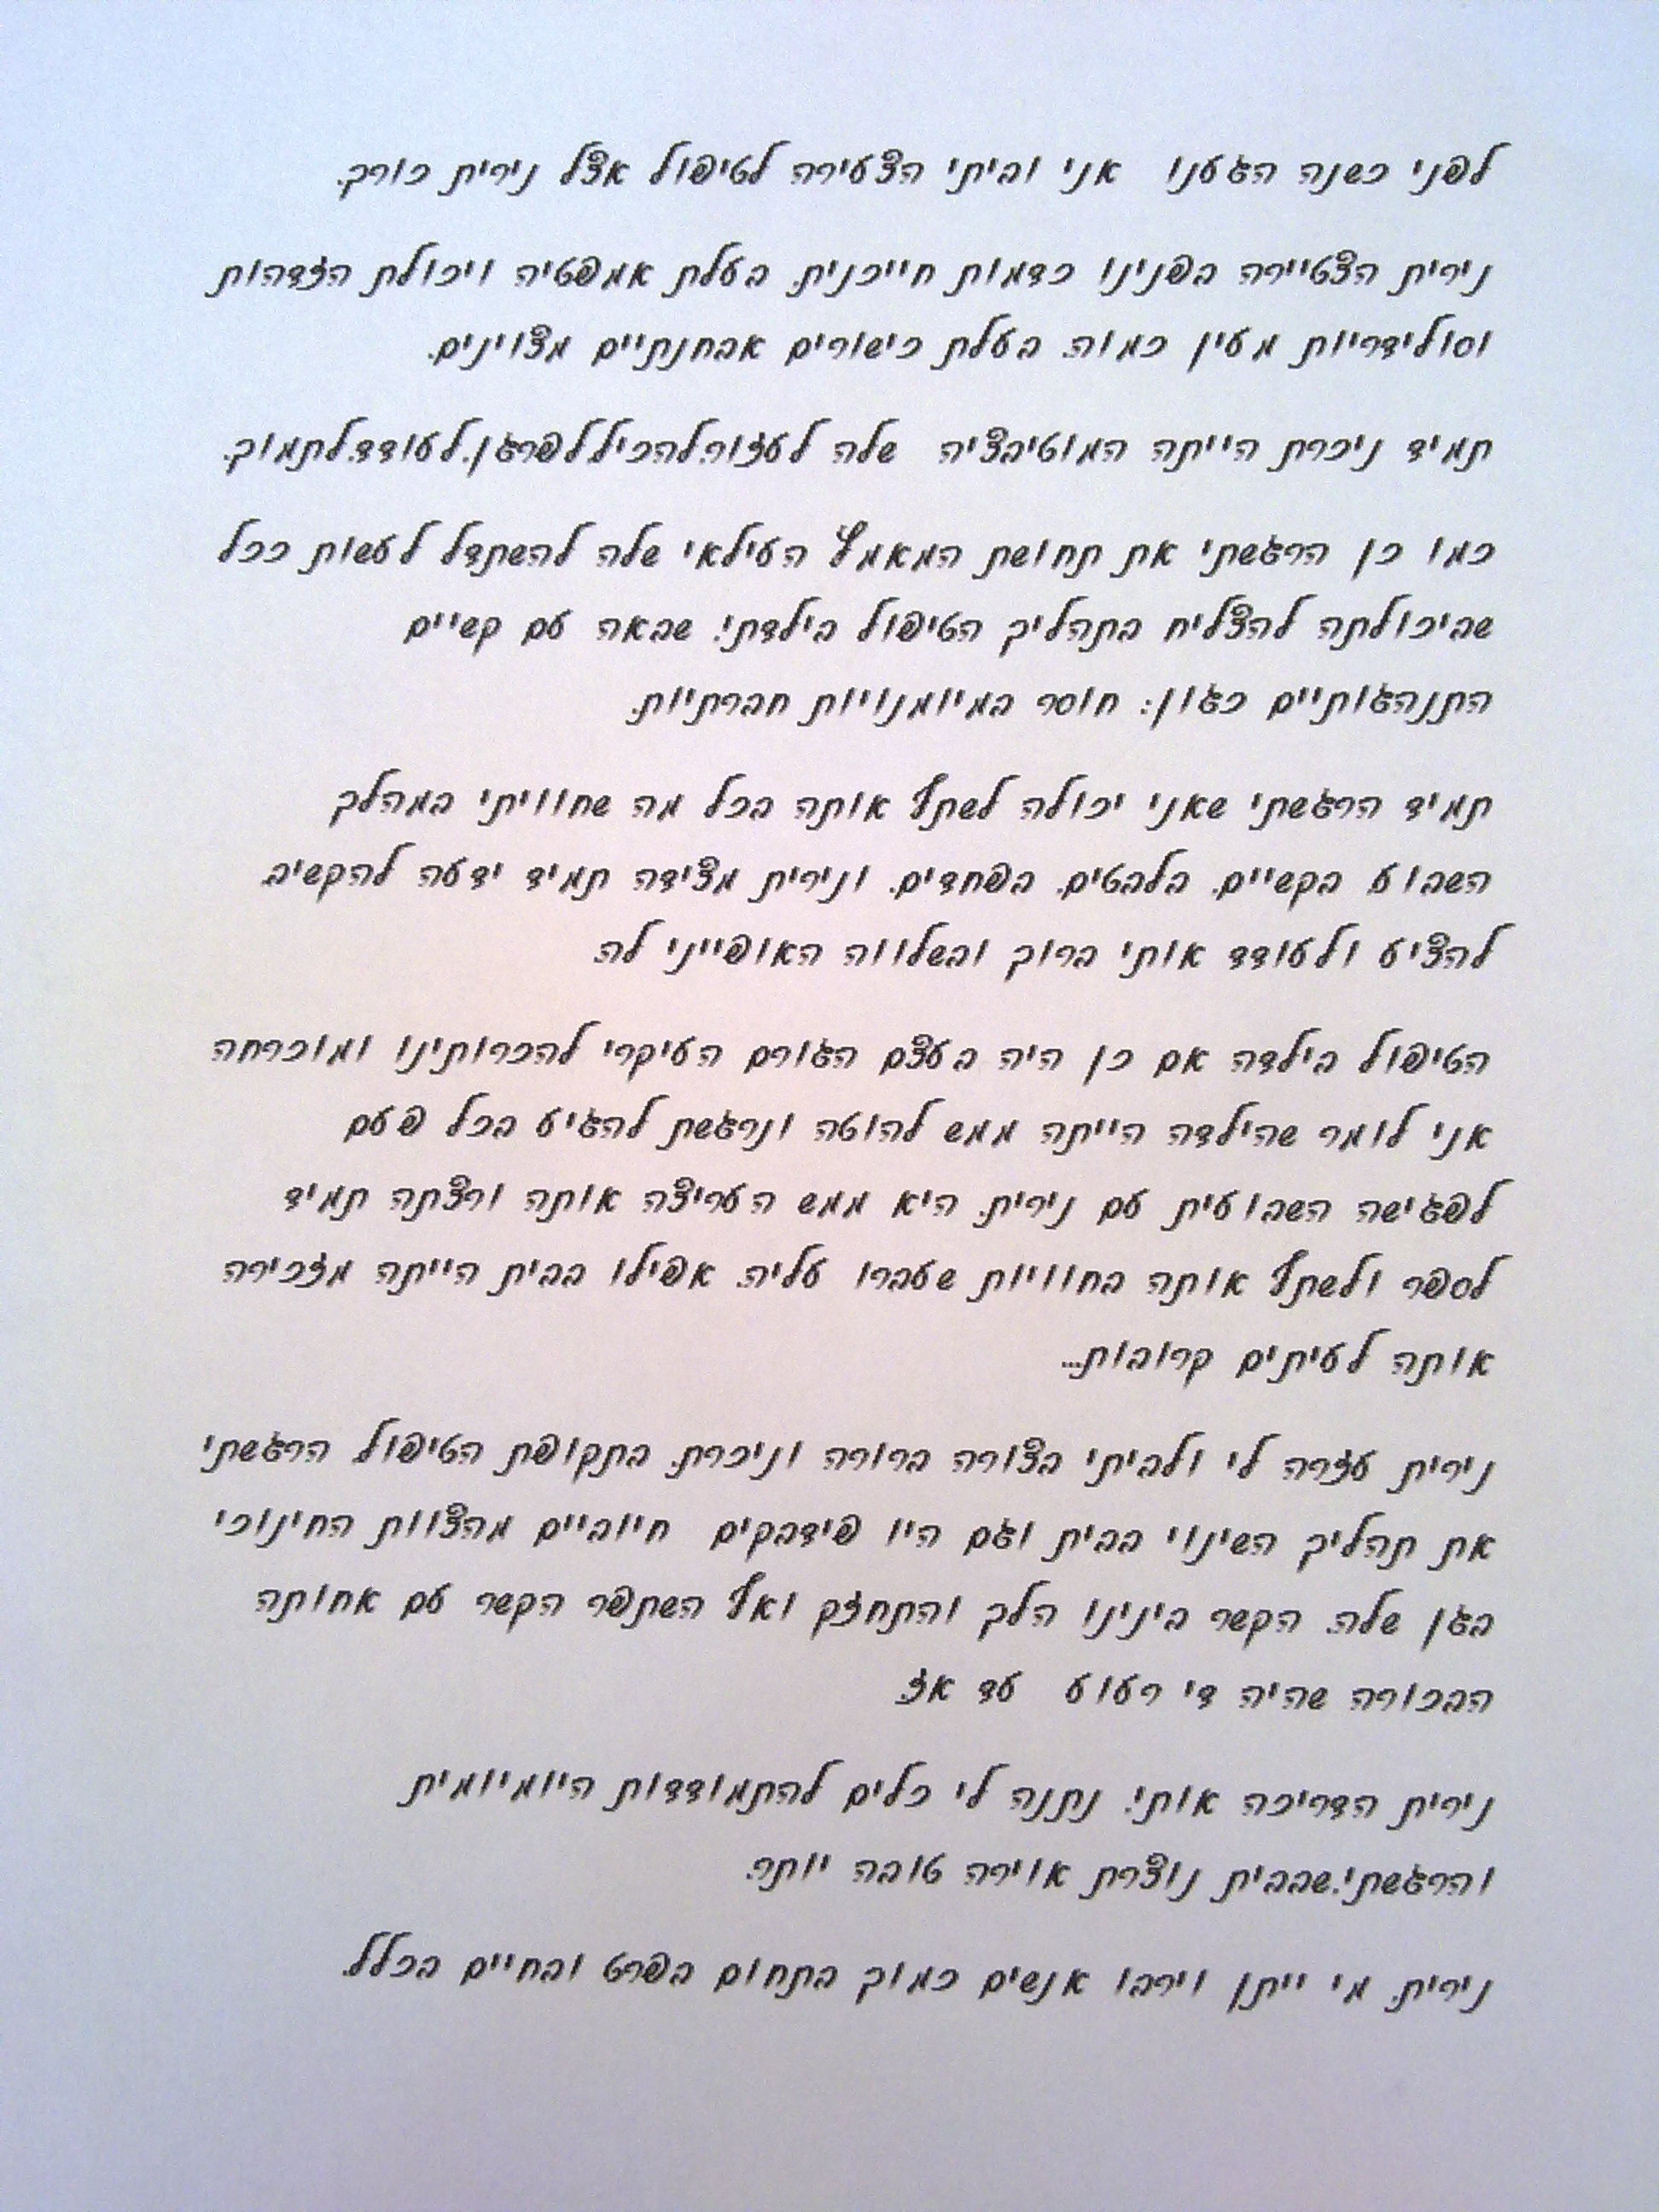 לפני כשנה הגענו אני וביתי הצעירה לטיפול אצל נירית כורך.
נירית הצטיירה בפנינו כדמות חייכנית, בעלת אמפטיה ויכולת הזדהות
וסולידריות מעין כמוה. בעלת כישורים אבחנתיים מצוינים.
תמיד ניכרת הייתה המוטיבציה שלה לעזור,להכיל,לפרגן,לעודד,לתמוך.
כמו כן הרגשתי את תחושת המאמץ העילאי שלה להשתדל לעשות ככל
שביכולתה להצליח בתהליך הטיפול בילדתי, שבאה עם קשיים
התנהגותיים כגון: חוסר במיומנויות חברתיות.
תמיד הרגשתי שאני יכולה לשתף אותה בכל מה שחוויתי במהלך
השבוע, בקשיים, בלבטים, בפחדים, ונירית מצידה תמיד ידעה להקשיב,
להציע ולעודד אותי ברוך ובשלווה האופייני לה.
הטיפול בילדה אם כן היה בעצם הגורם העיקרי להכרותינו ומוכרחה
אני לומר שהילדה הייתה ממש להוטה ונרגשת להגיע בכל פעם
לפגישה השבועית עם נירית. היא ממש העריצה אותה ורצתה תמיד
לספר ולשתף אותה בחוויות שעברו עליה. אפילו בבית הייתה מזכירה
אותה לעיתים קרובות...
נירית עזרה לי ולביתי בצורה ברורה וניכרת. בתקופת הטיפול, הרגשתי
את תהליך השינוי בבית וגם היו פידבקים חיוביים מהצוות החינוכי
בגן שלה. הקשר בינינו הלך והתחזק ואף השתפר הקשר עם אחותה
הבכורה שהיה די רעוע עד אז.
נירית הדריכה אותי, נתנה לי כלים להתמודדות היומיומית
והרגשתי,שבבית נוצרת אוירה טובה יותר.
נירית, מי ייתן וירבו אנשים כמוך בתחום בפרט ובחיים בכלל.